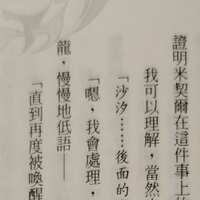 證明米契爾在這件事上的
我可以理解，當然
「沙汐……後面的
「嗯，我會處理，
龍，慢慢地低語
「直到再度被喚醒